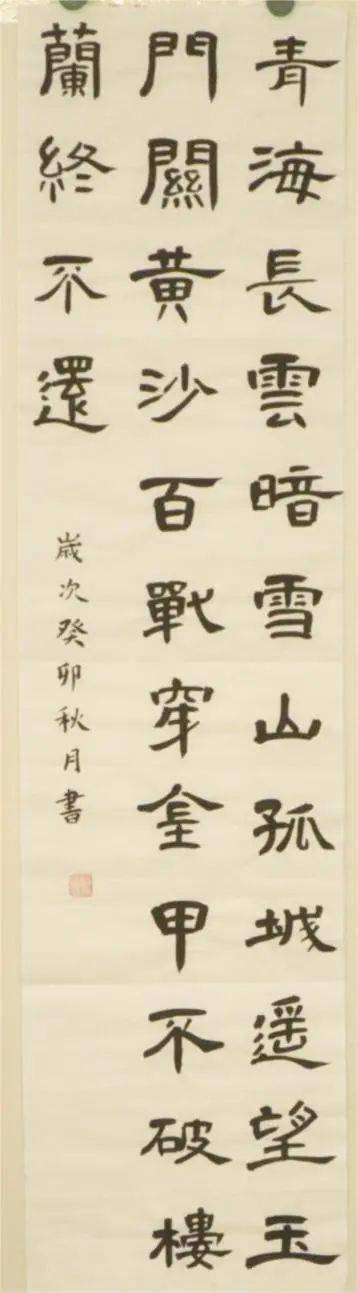 青海長雲暗雪山孤城遥望玉
門關黄沙百戰穿金甲不破樓
蘭終不還
歲次癸卯秋月書